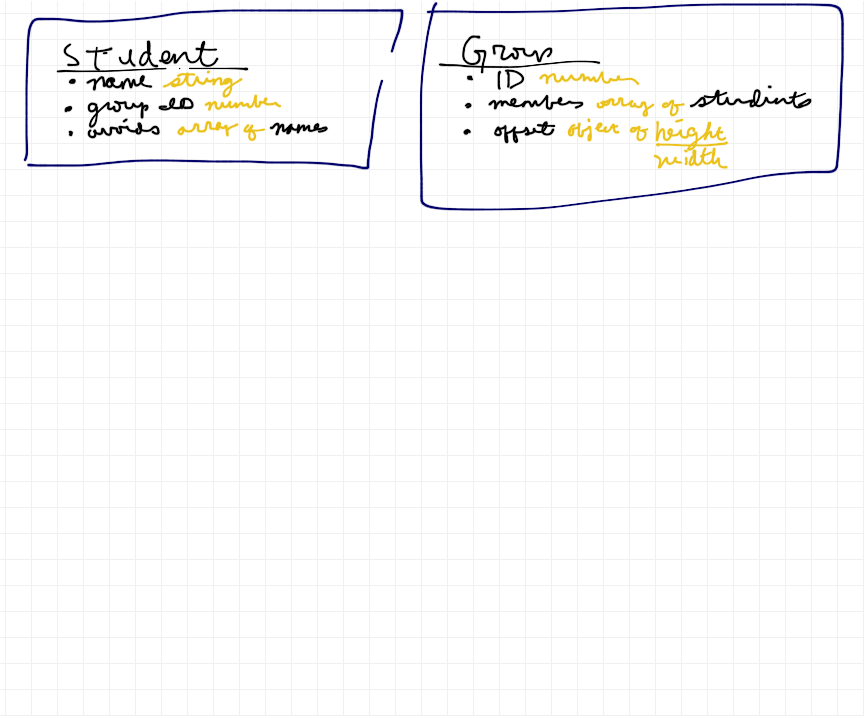 Student
• name string
• group ID number
• avoids array of names
Group
• ID number
• members array of students
• offset object of height
width